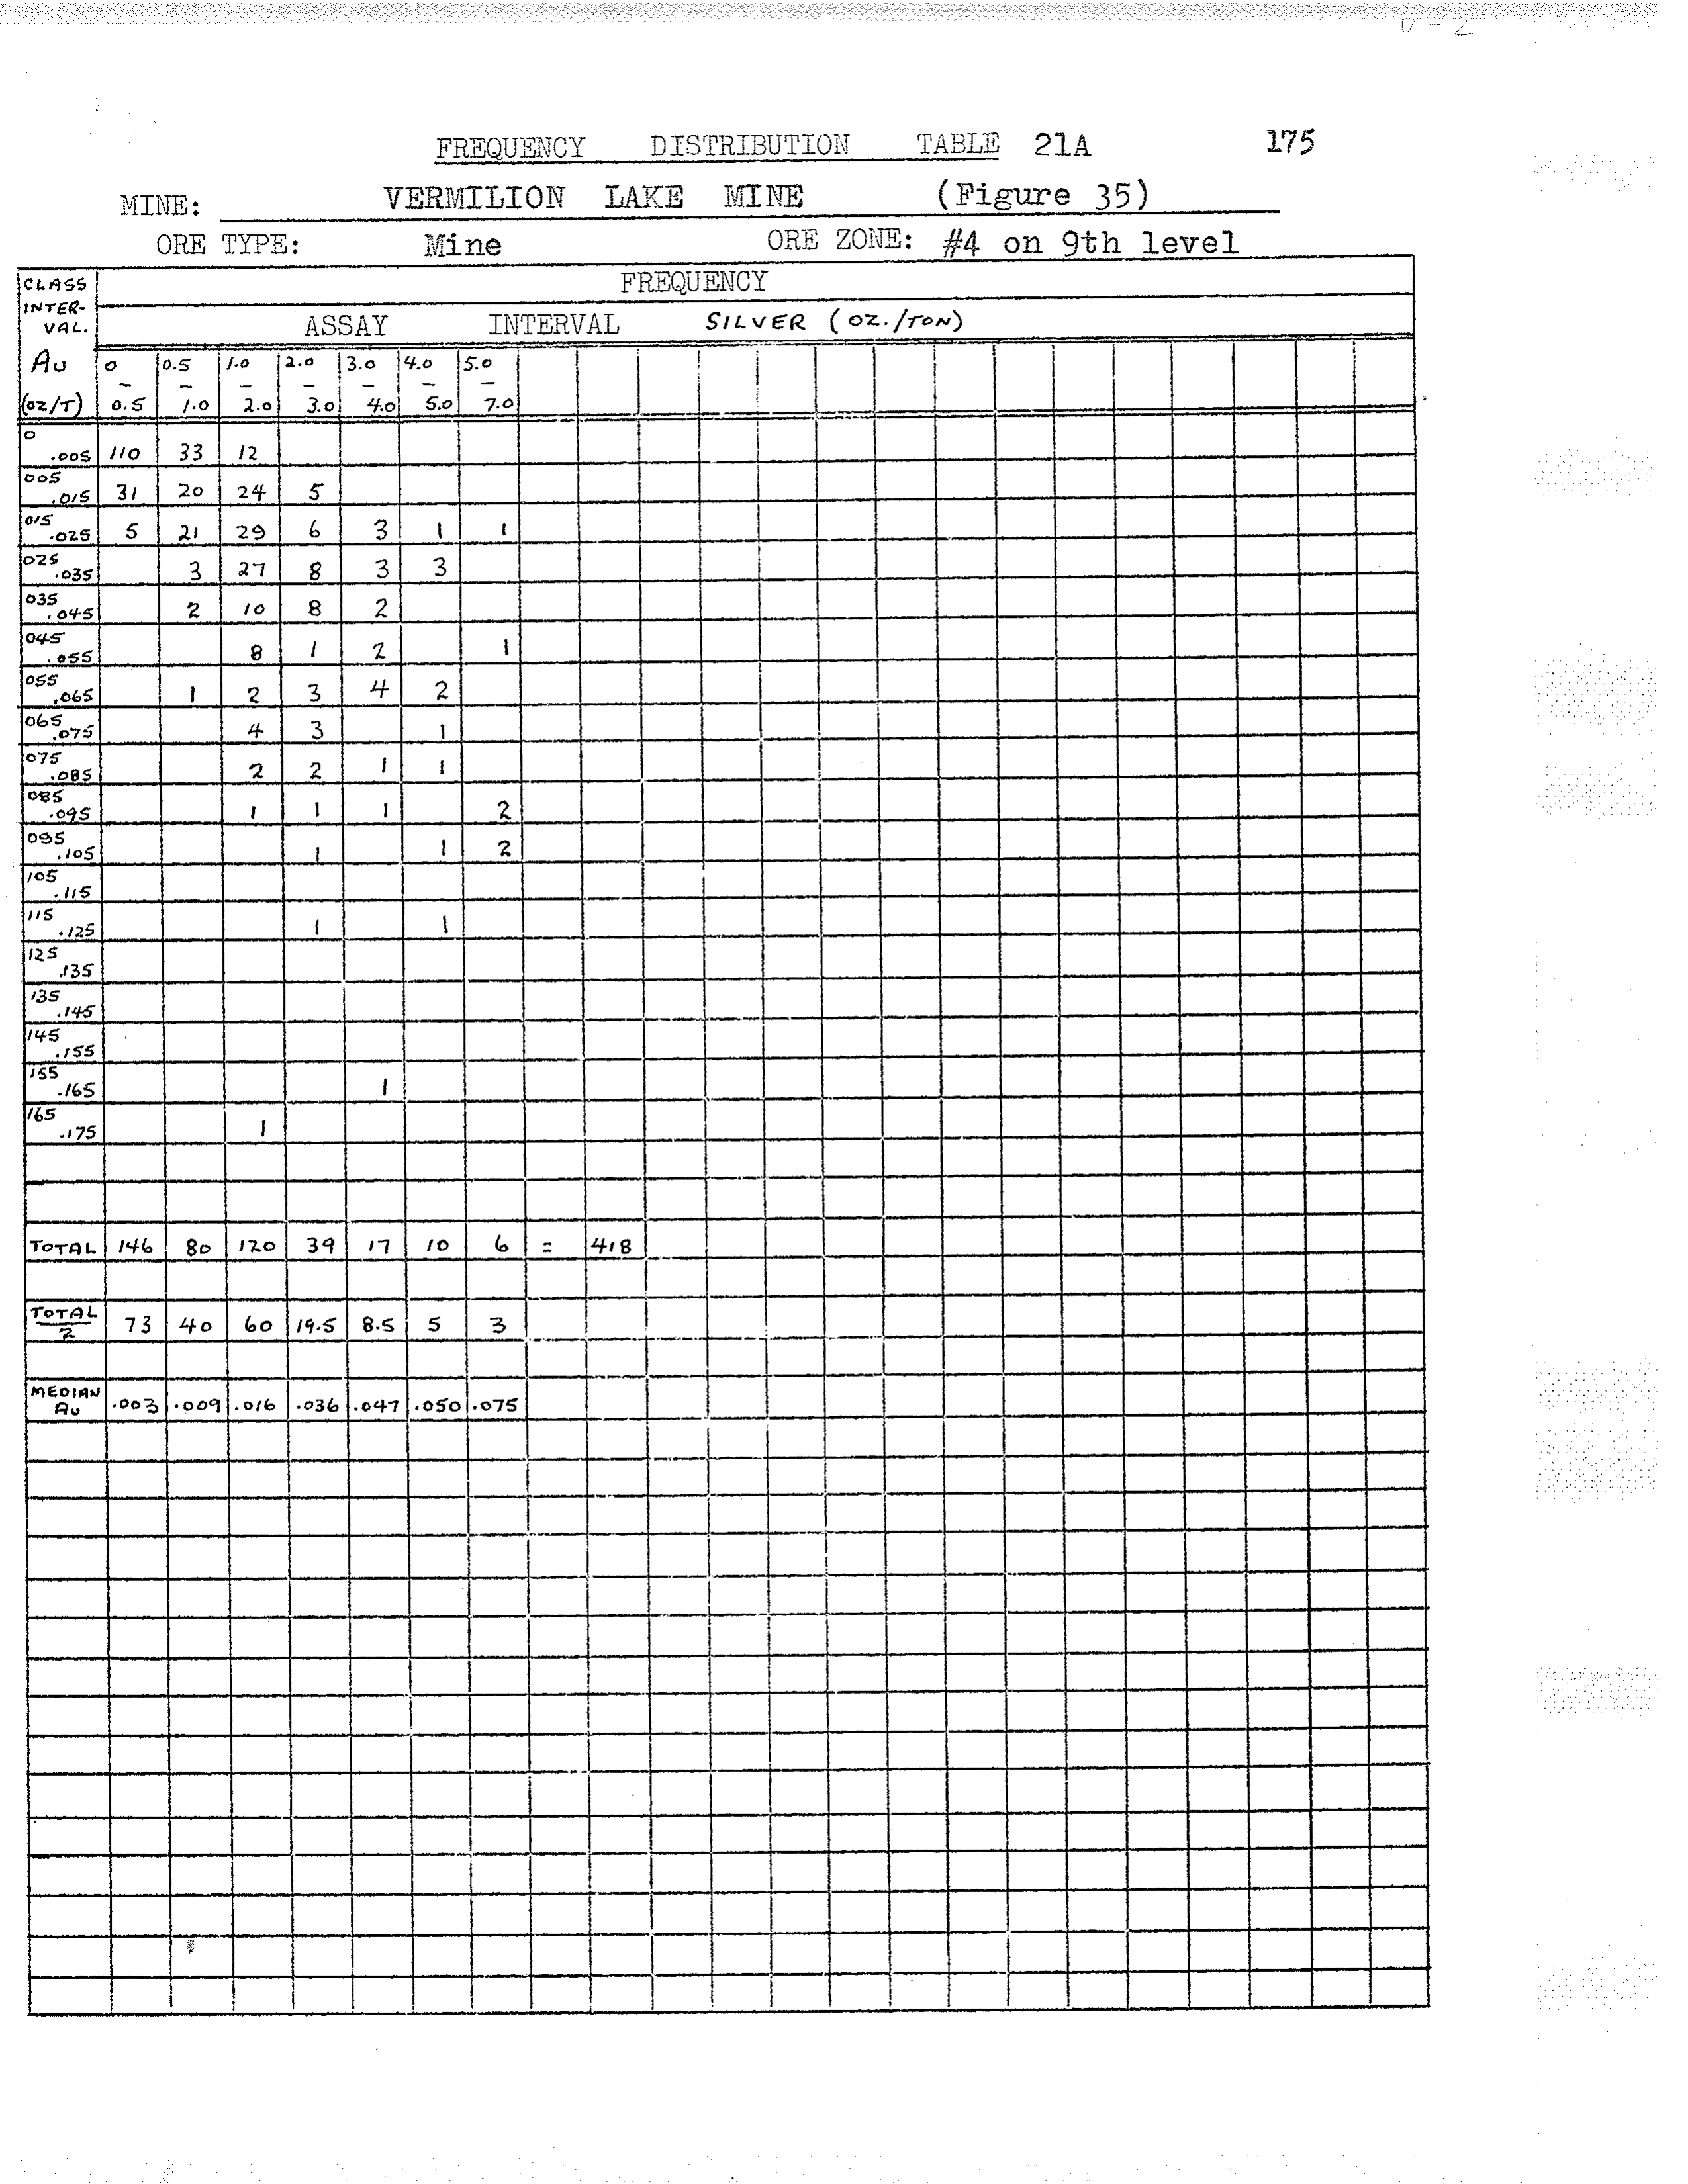 U - 2
FREQUENCY DISTRIBUTION TABLE 21A 175
MINE: VERMILION LAKE MINE (Figure 35)
ORE TYPE: Mine ORE ZONE: #4 on 9th level
CLASS INTER- VAL. Au (oz/T)
FREQUENCY
ASSAY INTERVAL SILVER (OZ./TON)
0 - 0.5 0.5 - 1.0 1.0 - 2.0 2.0 - 3.0 3.0 - 4.0 4.0 - 5.0 5.0 - 7.0
0 .005 110 33 12
005 .015 31 20 24 5
015 .025 5 21 29 6 3 1 1
025 .035 3 27 8 3 3
035 .045 2 10 8 2
045 .055 8 1 2 1
055 .065 1 2 3 4 2
065 .075 4 3 1
075 .085 2 2 1 1
085 .095 1 1 1 2
095 .105 1 1 2
105 .115
115 .125 1 1
125 .135
135 .145
145 .155
155 .165 1
165 .175 1
TOTAL 146 80 120 39 17 10 6 = 418
TOTAL 2 73 40 60 19.5 8.5 5 3
MEDIAN Au .003 .009 .016 .036 .047 .050 .075